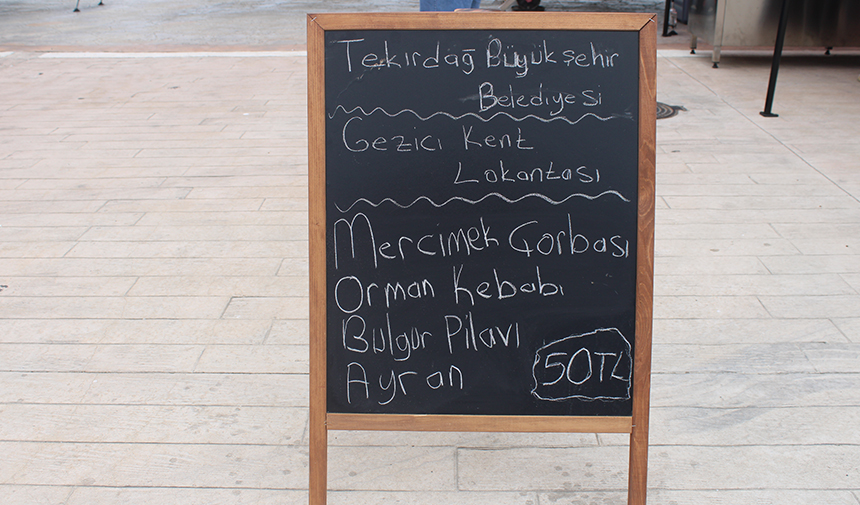 Tekirdağ Büyükşehir
Belediyesi
Gezici Kent
Lokantası
Mercimek Çorbası
Orman Kebabı
Bulgur Pilavı
Ayran
50TL